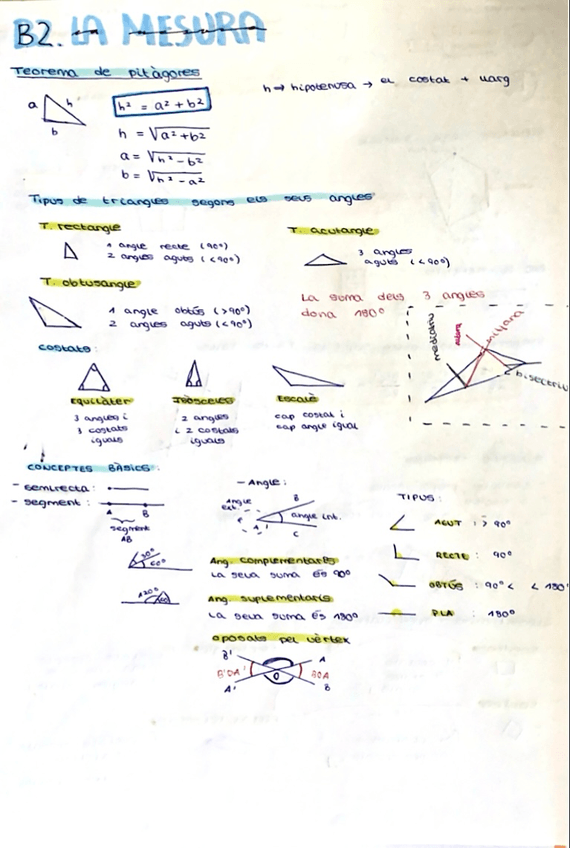 B2. LA MESURA
Teorema de pitàgores
h ⇒ hipotenusa → el costat + llarg
a h b
h² = a² + b²
h = √a² + b²
a = √h² - b²
b = √h² - a²
Tipus de triangles segons els seus angles
T. rectangle
1 angle recte (90º)
2 angles aguts (<90º)
T. acutangle
3 angles
aguts (<90º)
T. obtusangle
1 angle obtús (>90º)
2 angles aguts (<90º)
La suma dels 3 angles
dona 180º
mediatriu
altura
mitjana
bisectriu
costats:
Equilàter
3 angles i
3 costats
iguals
Isòsceles
2 angles
i 2 costats
iguals
Escalè
cap costat i
cap angle igual
CONCEPTES BÀSICS:
- semirecta:
- segment:
A B
segment
AB
- Angle:
Angle
ext.
B
angle int.
A
C
TIPUS:
AGUT : > 90º
RECTE : 90º
OBTÚS : 90º < < 180º
PLA : 180º
30º
60º
Ang. complementaris
La seva suma és 90º
120º
60
Ang. suplementaris
La seva suma és 180º
oposats pel vèrtex
B' A
B'OA' O BOA
A' B